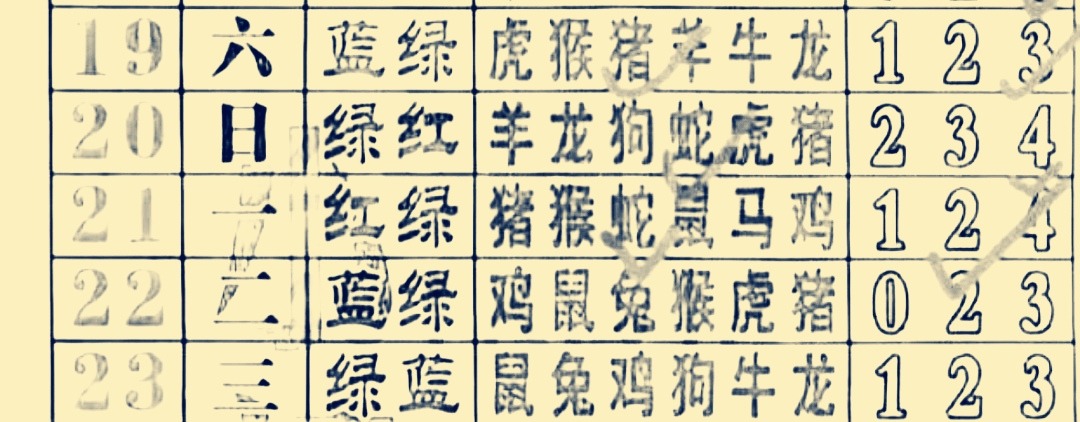 19 六 蓝绿 虎猴猪羊牛龙 1 2 3
20 日 绿红 羊龙狗蛇虎猪 2 3 4
21 一 红绿 猪猴蛇鼠马鸡 1 2 4
22 二 蓝绿 鸡鼠兔猴虎猪 0 2 3
23 三 绿蓝 鼠兔鸡狗牛龙 1 2 3